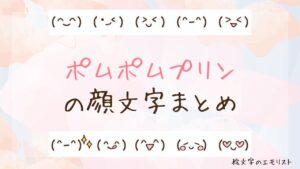 (^~^) (・~<) (>~<) (^−^) (>▽<)
ポムポムプリン
の顔文字まとめ
(^−^)✨ (^~<) (^▽^) (⌒~⌒) (♡~♡)
絵文字のエモリスト